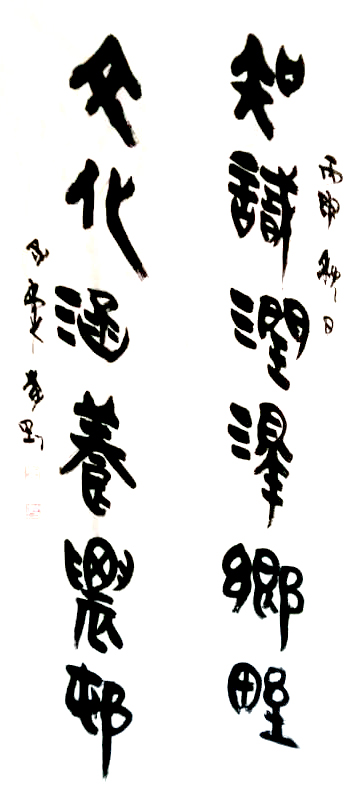 丙申秋日
知識潤澤鄉野
文化涵養農邨